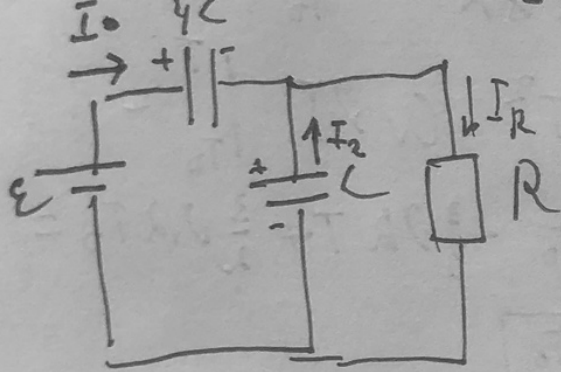 I₀ 4C
+ -
I_R
I₂
ε + C R
-